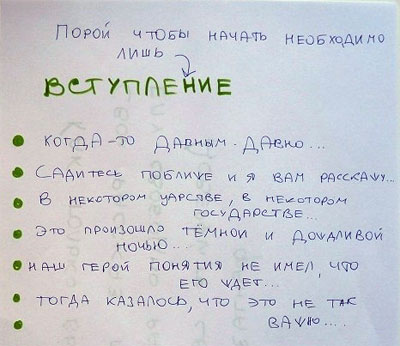 Порой чтобы начать необходимо
лишь
ВСТУПЛЕНИЕ
• Когда-то давным-давно...
• Садитесь поближе и я вам расскажу...
• В некотором царстве, в некотором
государстве...
• Это произошло тёмной и дождливой
ночью....
• Наш герой понятия не имел, что
его ждет...
• Тогда казалось, что это не так
важно....
•